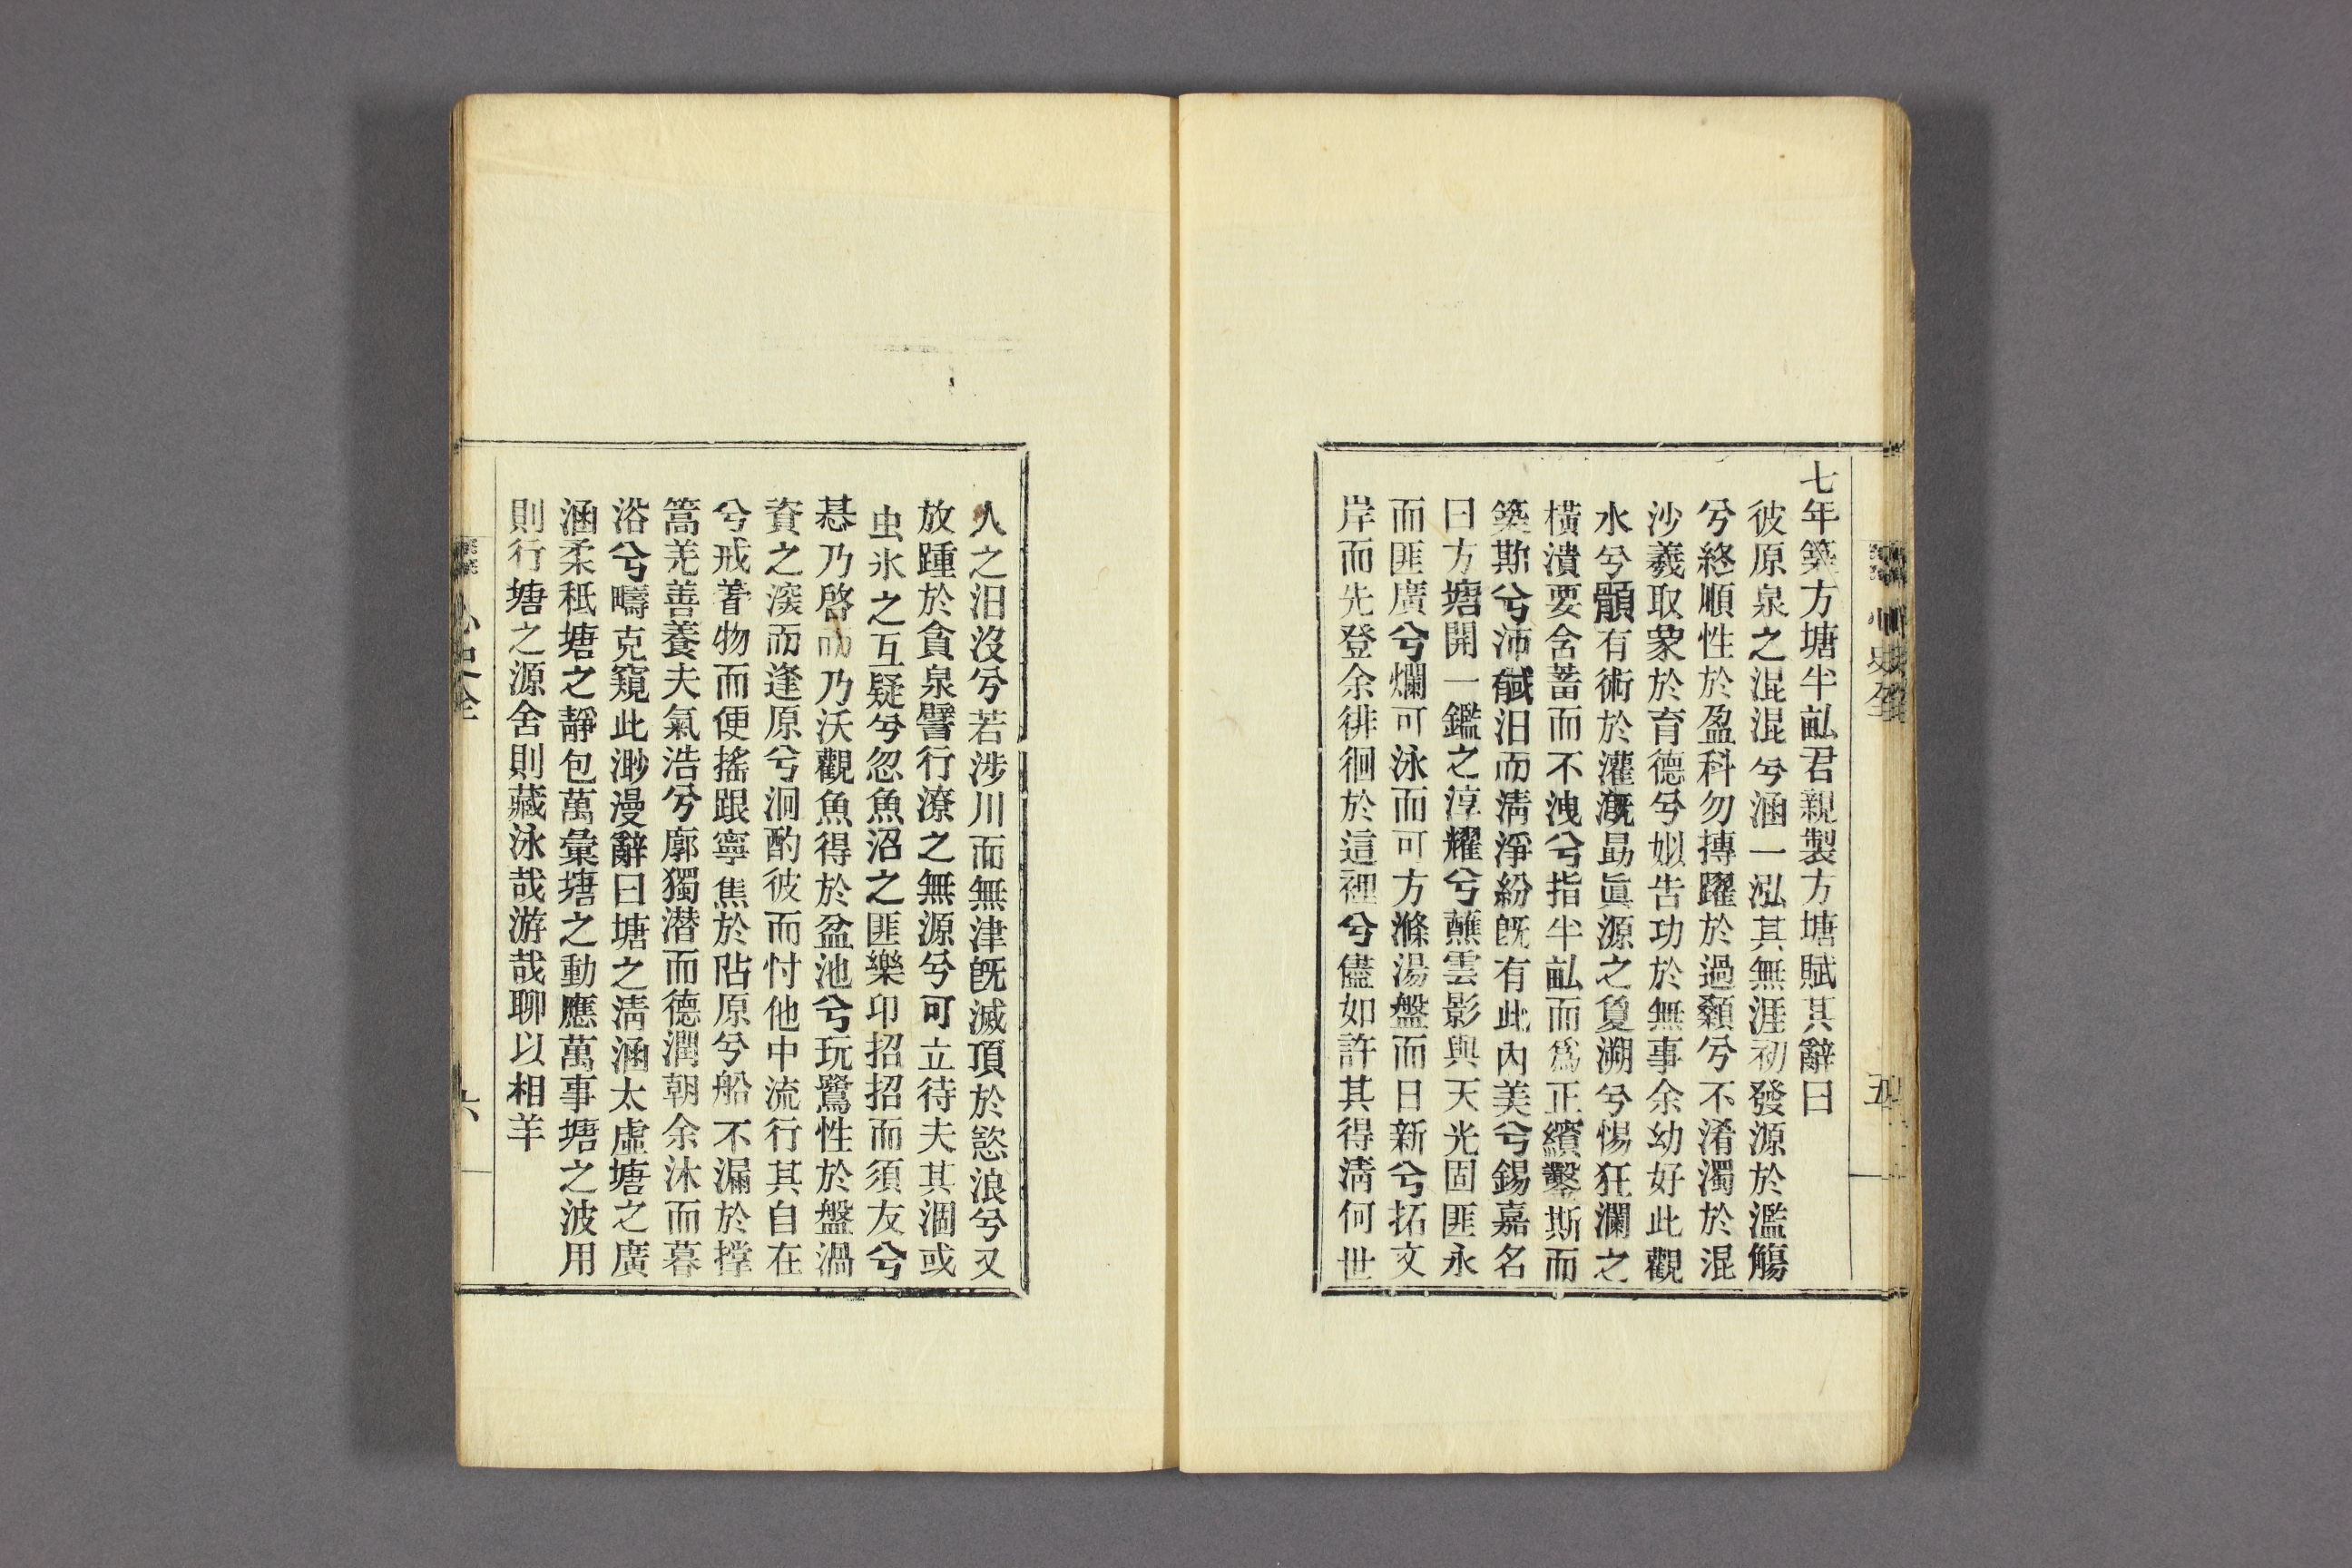 七年築方塘半畆君親製方塘賦其辭曰
彼原泉之混混兮涵一泓其無涯初發源於濫觴
兮終順性於盈科勿摶躍於過顙兮不淆濁於混
沙羲取蒙於育德兮姒告功於無事余幼好此觀
水兮願有術於灌漑勗眞源之敻溯兮惕狂瀾之
橫潰要舍蓄而不洩兮指半畆而爲正繽鑿斯而
築斯兮沛汩而淸淨紛旣有此內美兮錫嘉名
曰方塘開一鑑之淳耀兮蘸雲影與天光固匪永
而匪廣兮爛可泳而可方滌湯盤而日新兮拓文
岸而先登余徘徊於這裡兮儘如許其得淸何世
五
人之汨沒兮若涉川而無津旣滅頂於慾浪兮又
放踵於貪泉譬行潦之無源兮可立待夫其涸或
虫氷之互疑兮忽魚沼之匪樂卬招招而須友兮
惎乃啓乃沃觀魚得於盆池兮玩鷺性於盤渦
資之深而逢原兮泂酌彼而忖他中流行其自在
兮戒著物而便搖跟寧焦於阽原兮船不漏於撑
篙羌善養夫氣浩兮廓獨潛而德潤朝余沐而暮
浴兮疇克窺此渺漫辭曰塘之淸涵太虛塘之廣
涵柔秪塘之靜包萬彙塘之動應萬事塘之波用
則行塘之源舍則藏泳哉游哉聊以相羊
心史全
六